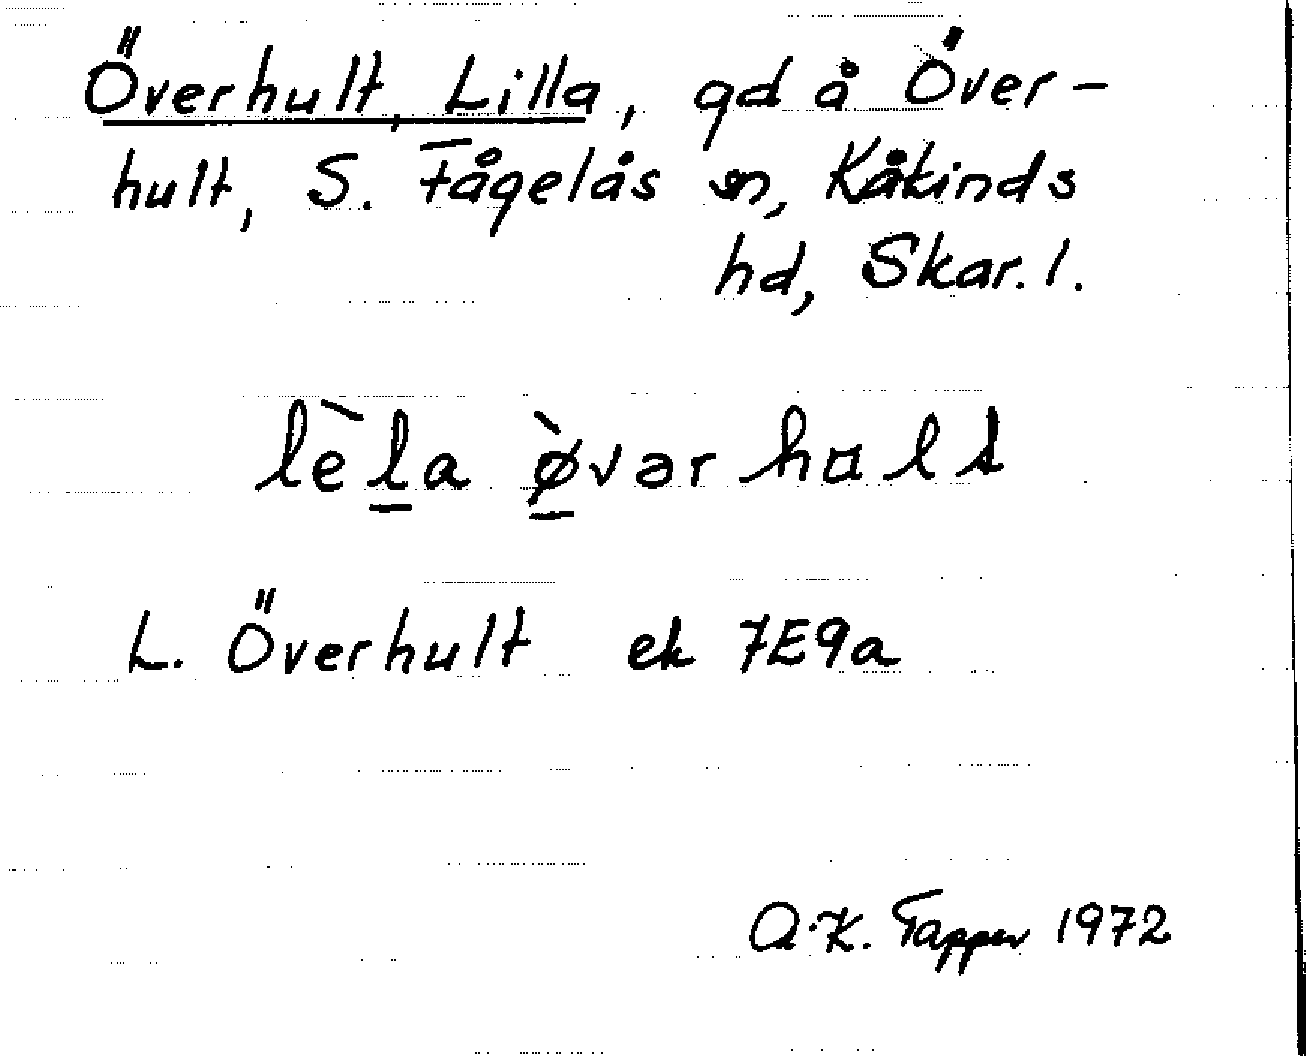 Överhult, Lilla, gd å Över-
hult, S. Fågelås sn, Kåkinds
hd, Skar. l.
lèla ø̀vər hɷlt
L. Överhult ek 7E9a
A.K. Tapper 1972